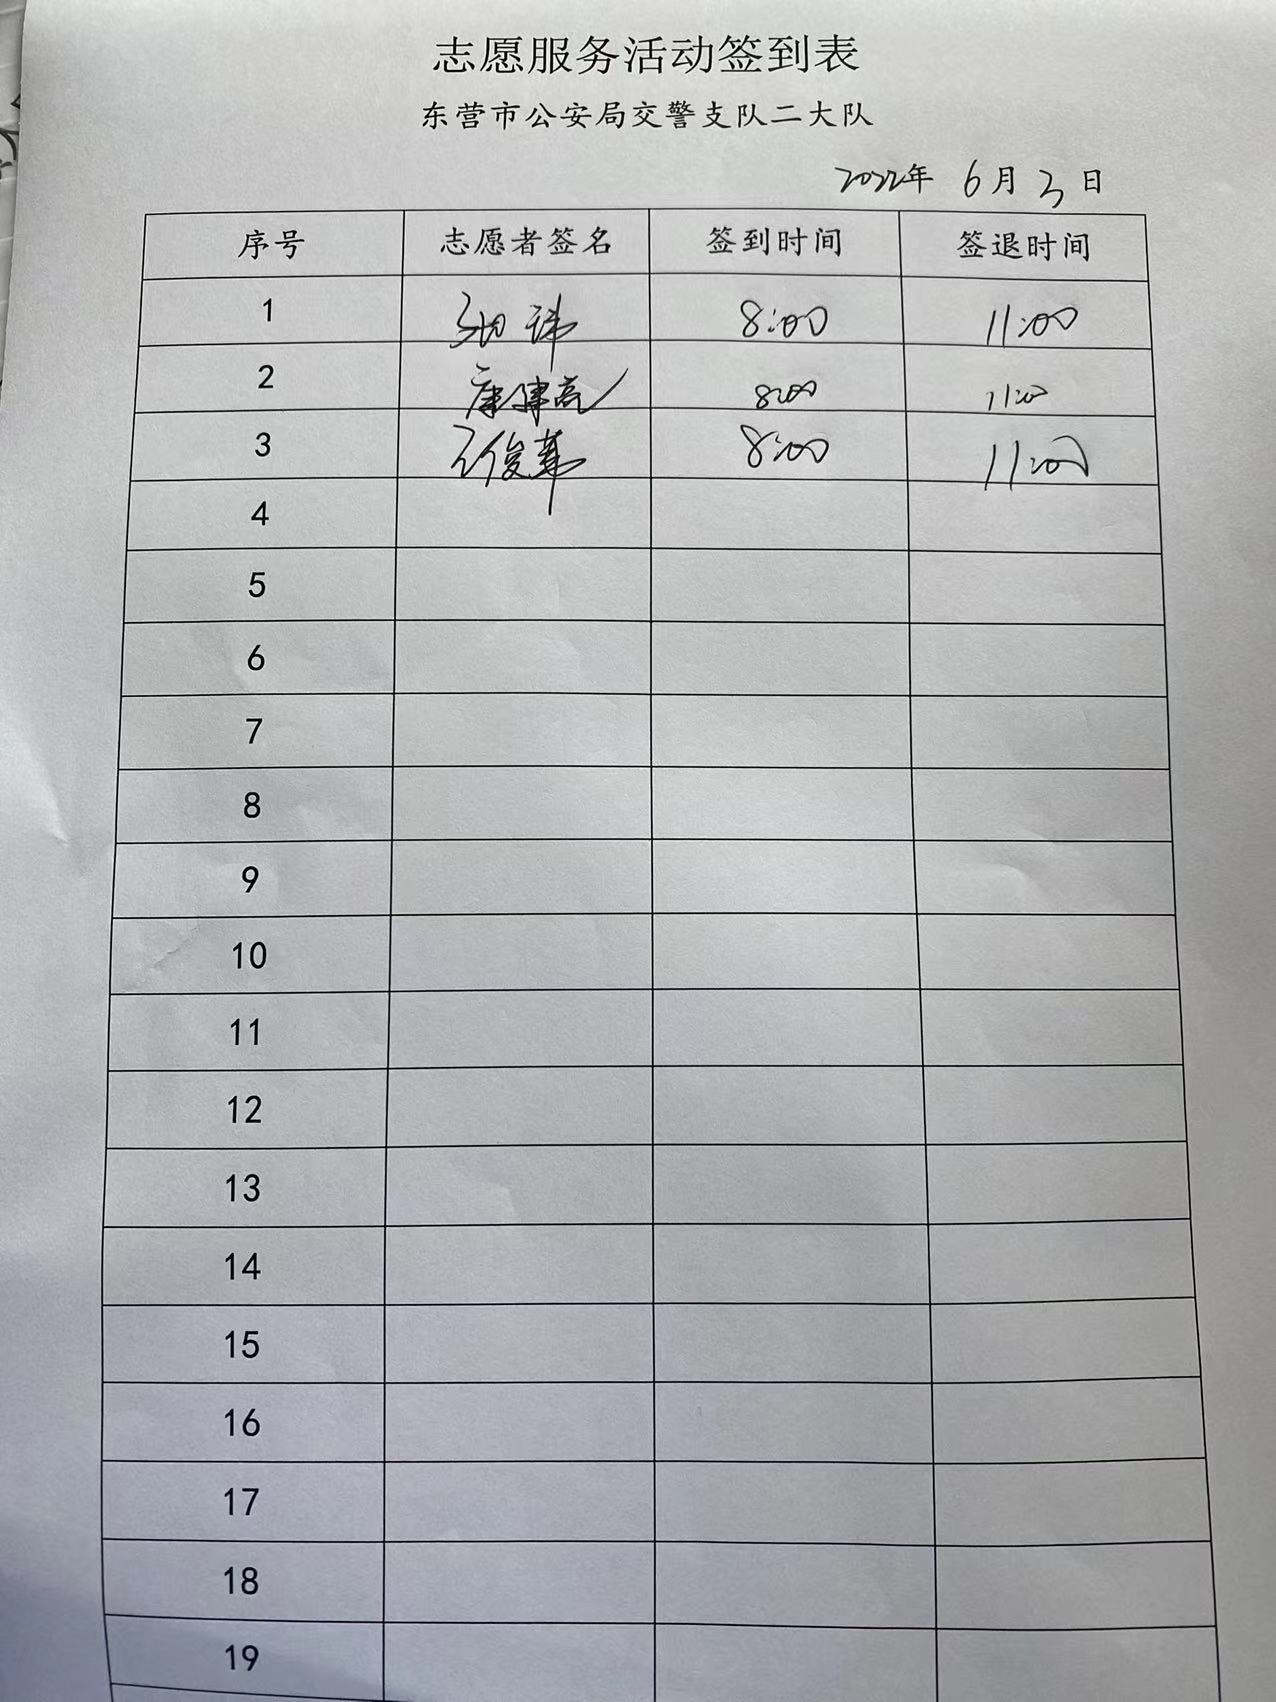 志愿服务活动签到表
东营市公安局交警支队二大队
2022年 6月 3日
序号 志愿者签名 签到时间 签退时间
1 8:00 11:00
2 康建亮 8:00 11:00
3 俊華 8:00 11:00
4
5
6
7
8
9
10
11
12
13
14
15
16
17
18
19